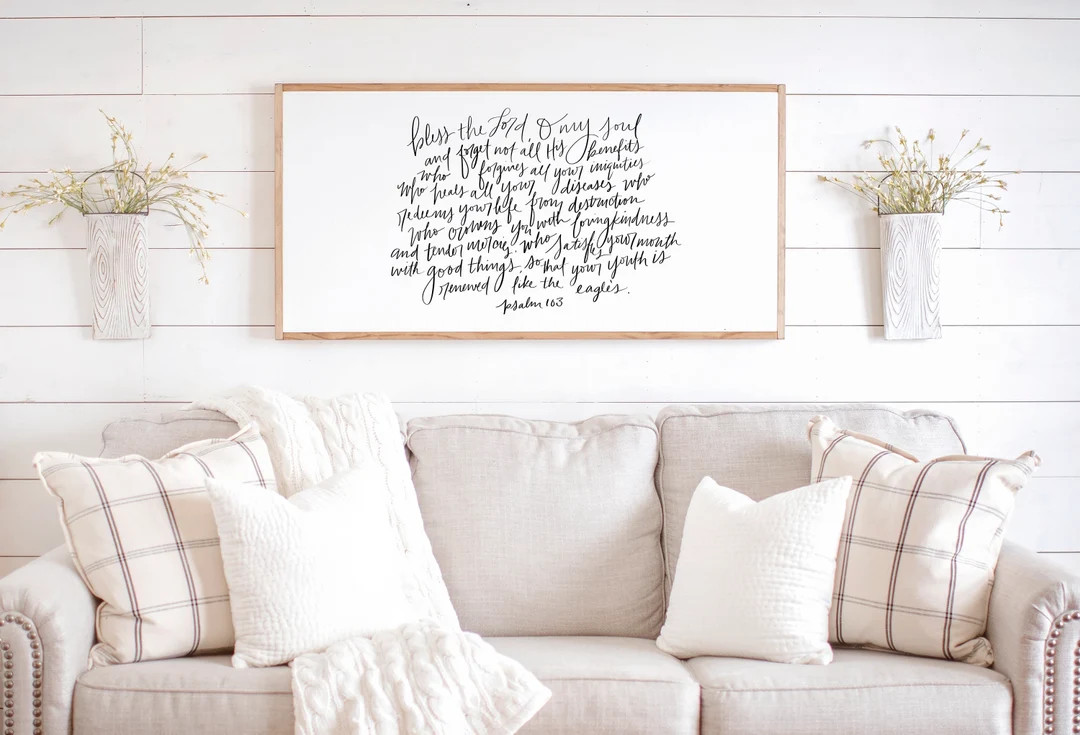 bless the Lord, O my soul
and forget not all His benefits
who forgives all your iniquities
who heals all your diseases who
redeems your life from destruction
who crowns you with lovingkindness
and tender mercies. who satisfies your mouth
with good things, so that your youth is
renewed like the eagle's.
psalm 103